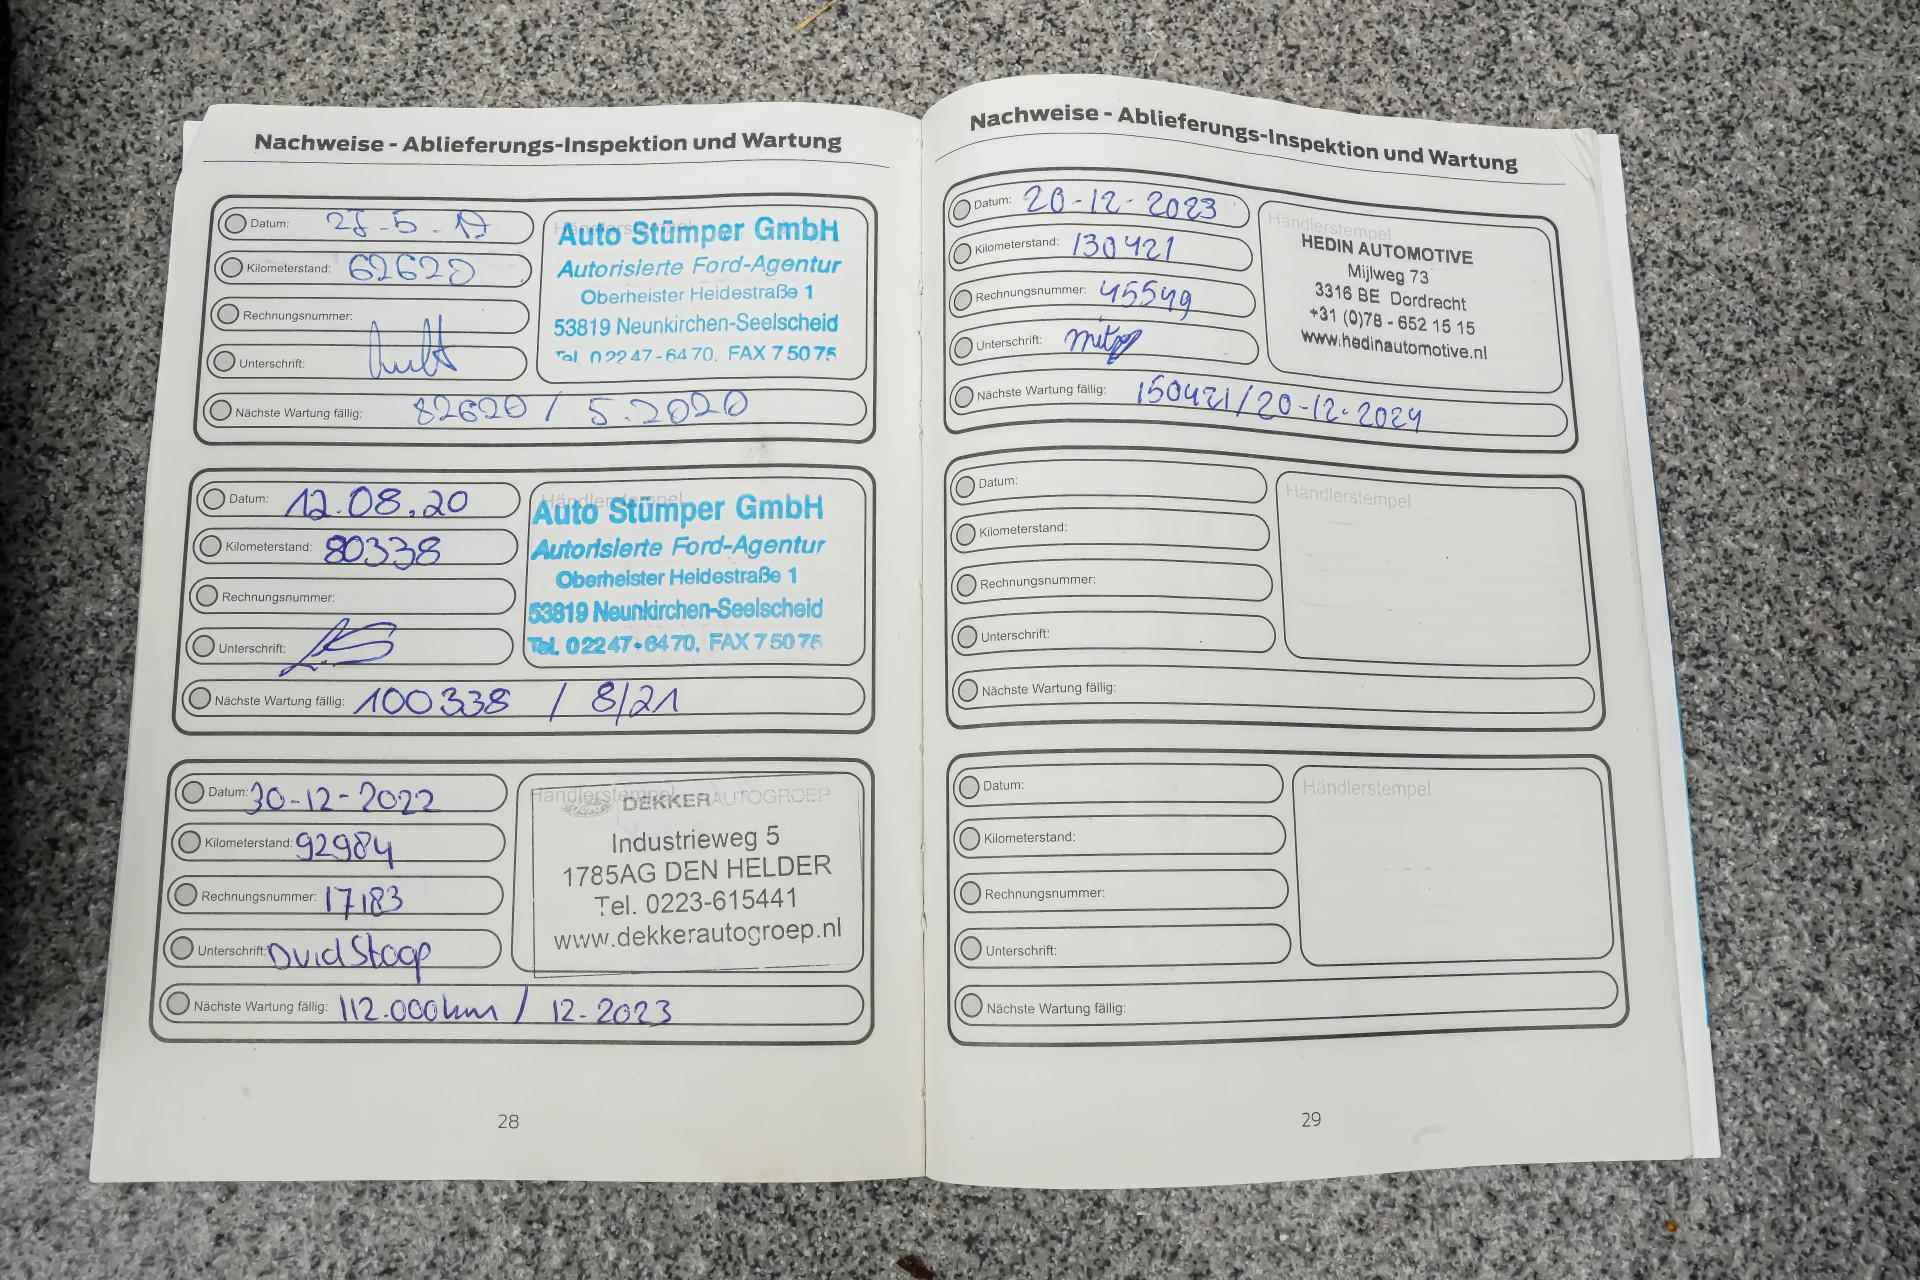 Nachweise - Ablieferungs-Inspektion und Wartung
Datum:
Kilometerstand: 62620
Rechnungsnummer:
Unterschrift:
Händlerstempel
Auto Stümper GmbH
Autorisierte Ford-Agentur
Oberheister Heidestraße 1
53819 Neunkirchen-Seelscheid
Tel. 02247-6470, FAX 75075
Nächste Wartung fällig: 82620 / 5.2020
Datum: 12.08.20
Kilometerstand: 80338
Rechnungsnummer:
Unterschrift:
Händlerstempel
Auto Stümper GmbH
Autorisierte Ford-Agentur
Oberheister Heidestraße 1
53819 Neunkirchen-Seelscheid
Tel. 02247-6470, FAX 75075
Nächste Wartung fällig: 100338 / 8/21
Datum: 30-12-2022
Kilometerstand: 92984
Rechnungsnummer: 17183
Unterschrift:
Händlerstempel
DEKKERAUTOGROEP
Industrieweg 5
1785AG DEN HELDER
Tel. 0223-615441
www.dekkerautogroep.nl
Nächste Wartung fällig: 112.000km / 12-2023
28
Nachweise - Ablieferungs-Inspektion und Wartung
Datum: 20-12-2023
Kilometerstand: 130421
Rechnungsnummer: 45549
Unterschrift:
Händlerstempel
HEDIN AUTOMOTIVE
Mijlweg 73
3316 BE Dordrecht
+31 (0)78 - 652 15 15
www.hedinautomotive.nl
Nächste Wartung fällig: 150421/20-12-2024
Datum:
Kilometerstand:
Rechnungsnummer:
Unterschrift:
Händlerstempel
Nächste Wartung fällig:
Datum:
Kilometerstand:
Rechnungsnummer:
Unterschrift:
Händlerstempel
Nächste Wartung fällig:
29